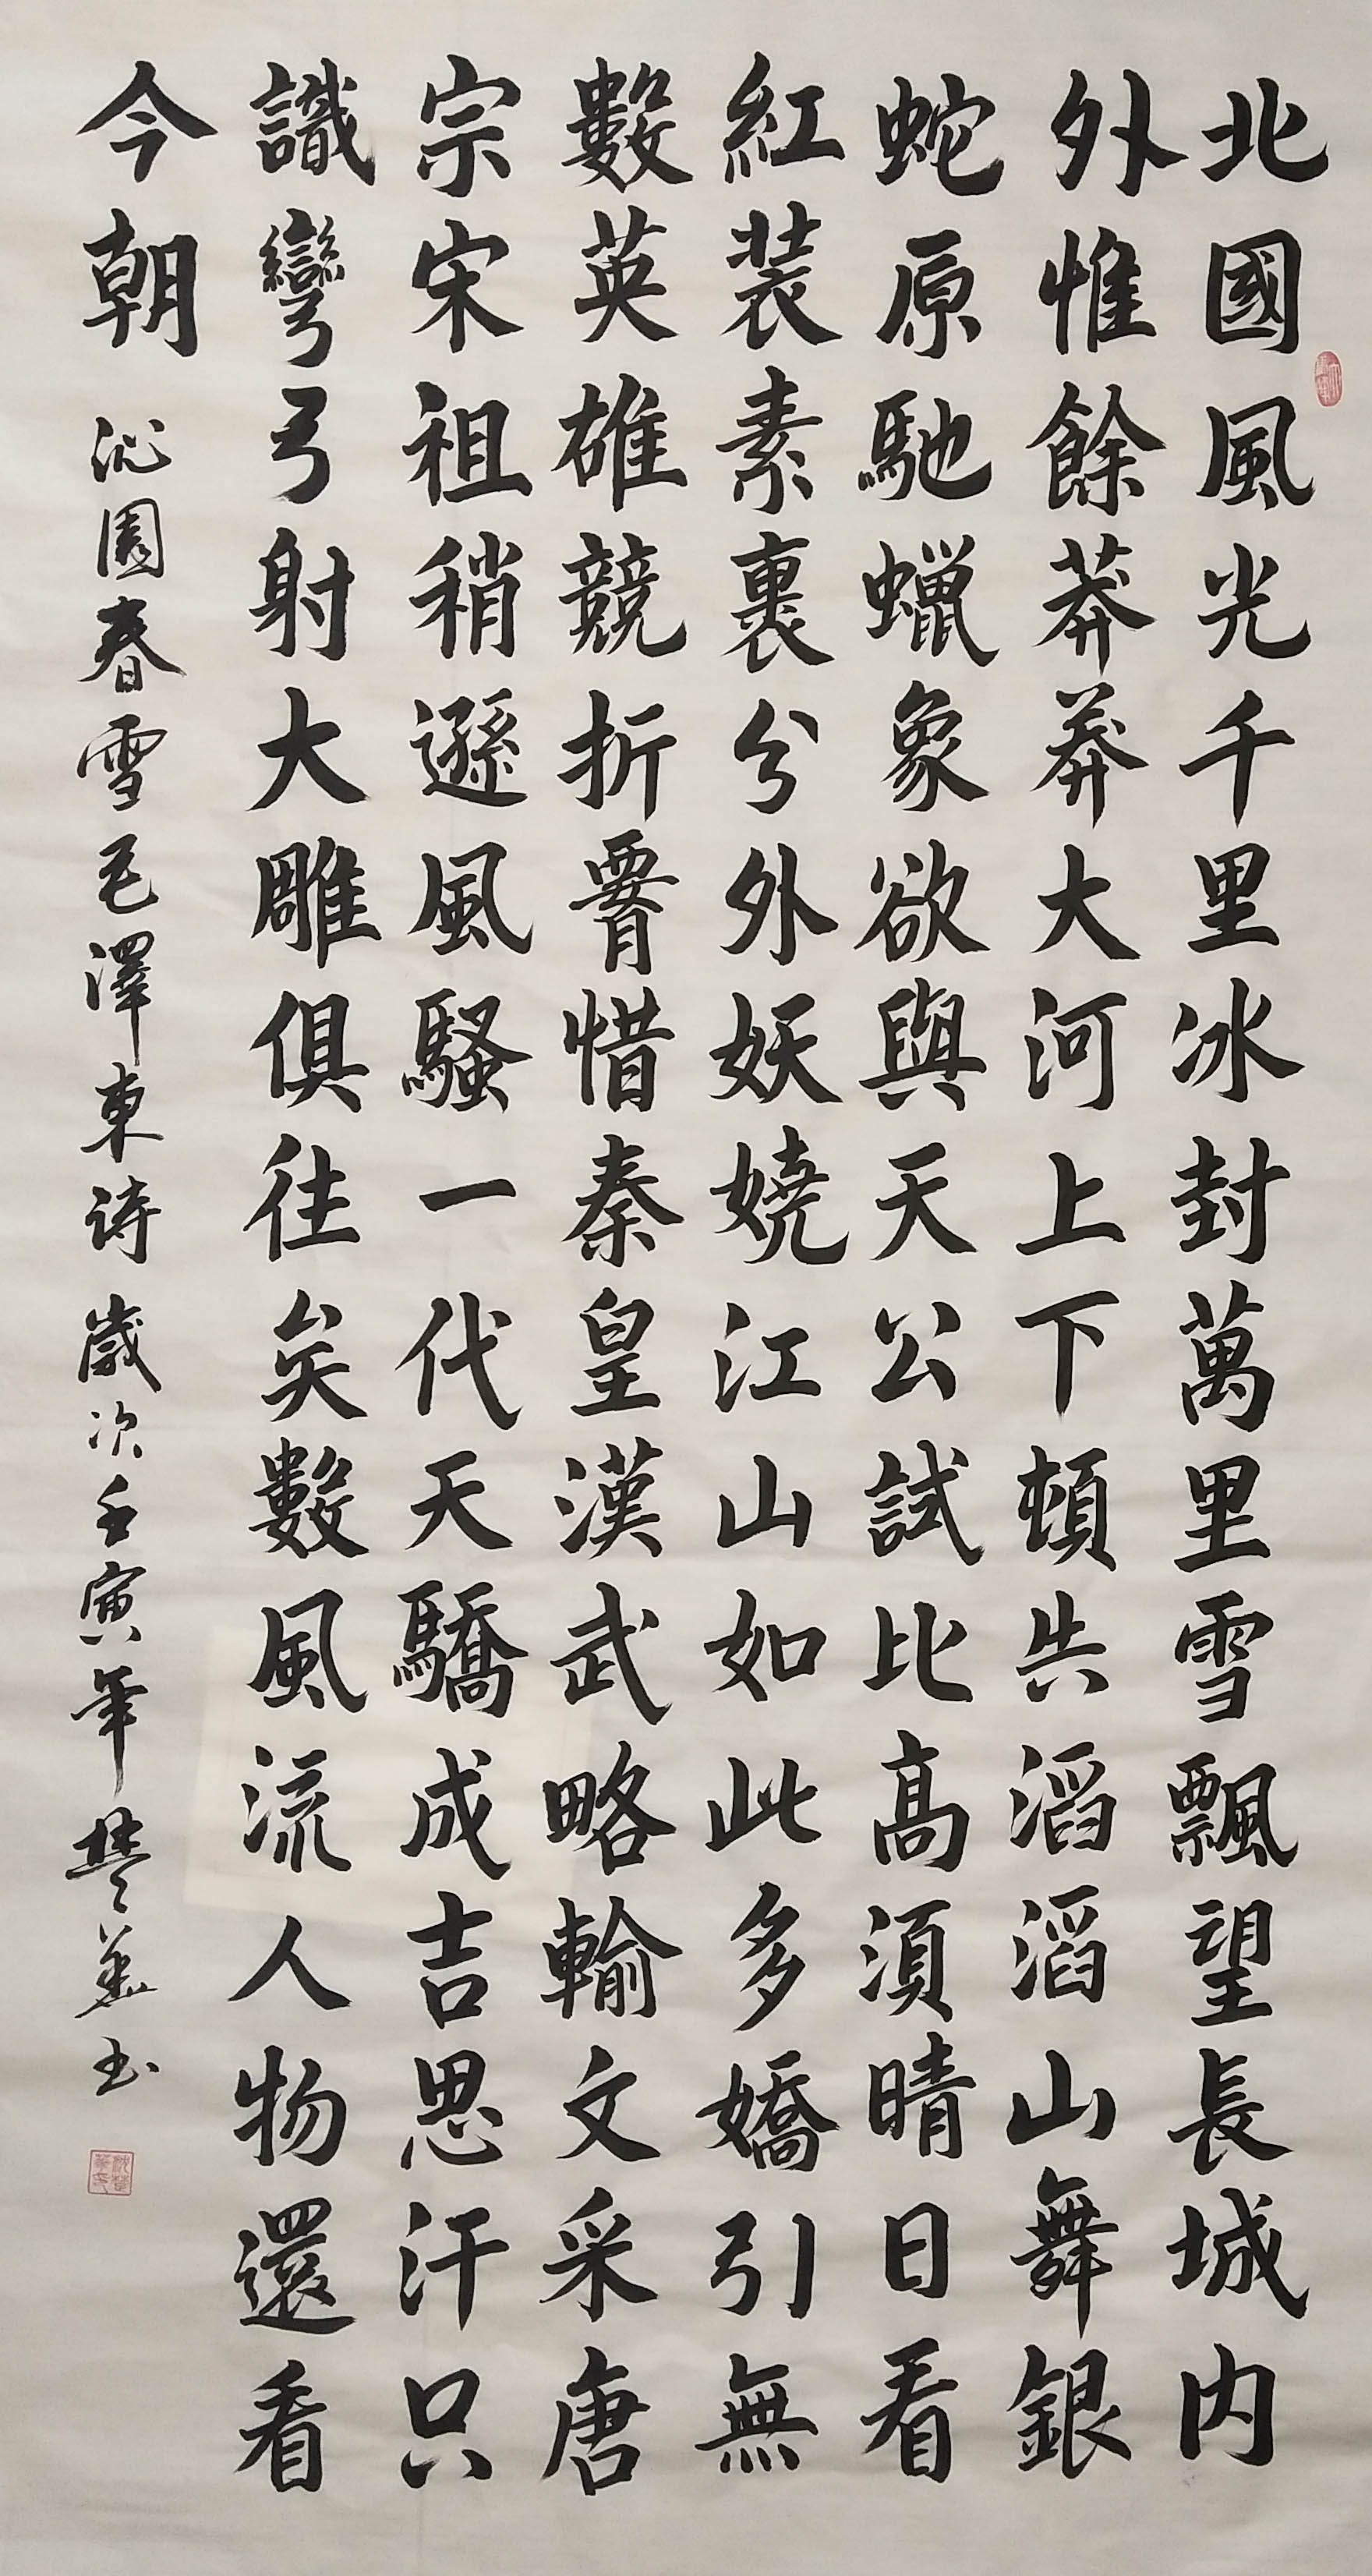 北國風光千里冰封萬里雪飄望長城内
外惟餘莽莽大河上下頓失滔滔山舞銀
蛇原馳蠟象欲與天公試比高須晴日看
紅装素裹分外妖嬈江山如此多嬌引無
數英雄競折腰惜秦皇漢武略輸文采唐
宗宋祖稍遜風騷一代天驕成吉思汗只
識彎弓射大雕俱往矣數風流人物還看
今朝
沁園春雪毛澤東诗歲次壬寅年楚華书